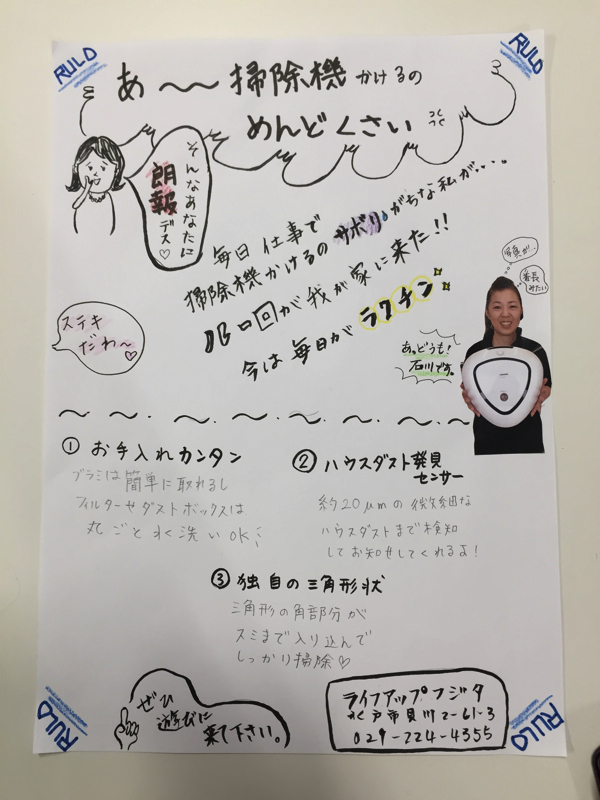 RULO
RULO
あ〜〜掃除機かけるの
めんどくさい
そんなあなたに
朗報
デス♡
毎日仕事で
掃除機かけるのサボりがちな私が・・・。
今は毎日がラクチン
ステキ
だわ〜♡
番長
みたい
あっどうも!
石川です。
① お手入れカンタン
ブラシは簡単に取れるし
フィルターやダストボックスは
丸ごと水洗いOK!
② ハウスダスト発見
センサー
約20μmの微細な
ハウスダストまで検知
してお知らせしてくれるよ!
③ 独自の三角形状
三角形の角部分が
スミまで入り込んで
しっかり掃除♡
ぜひ
遊びに
来て下さい。
ライフアップフジタ
水戸市見川2-61-3
029-224-4355
RULO
RULO